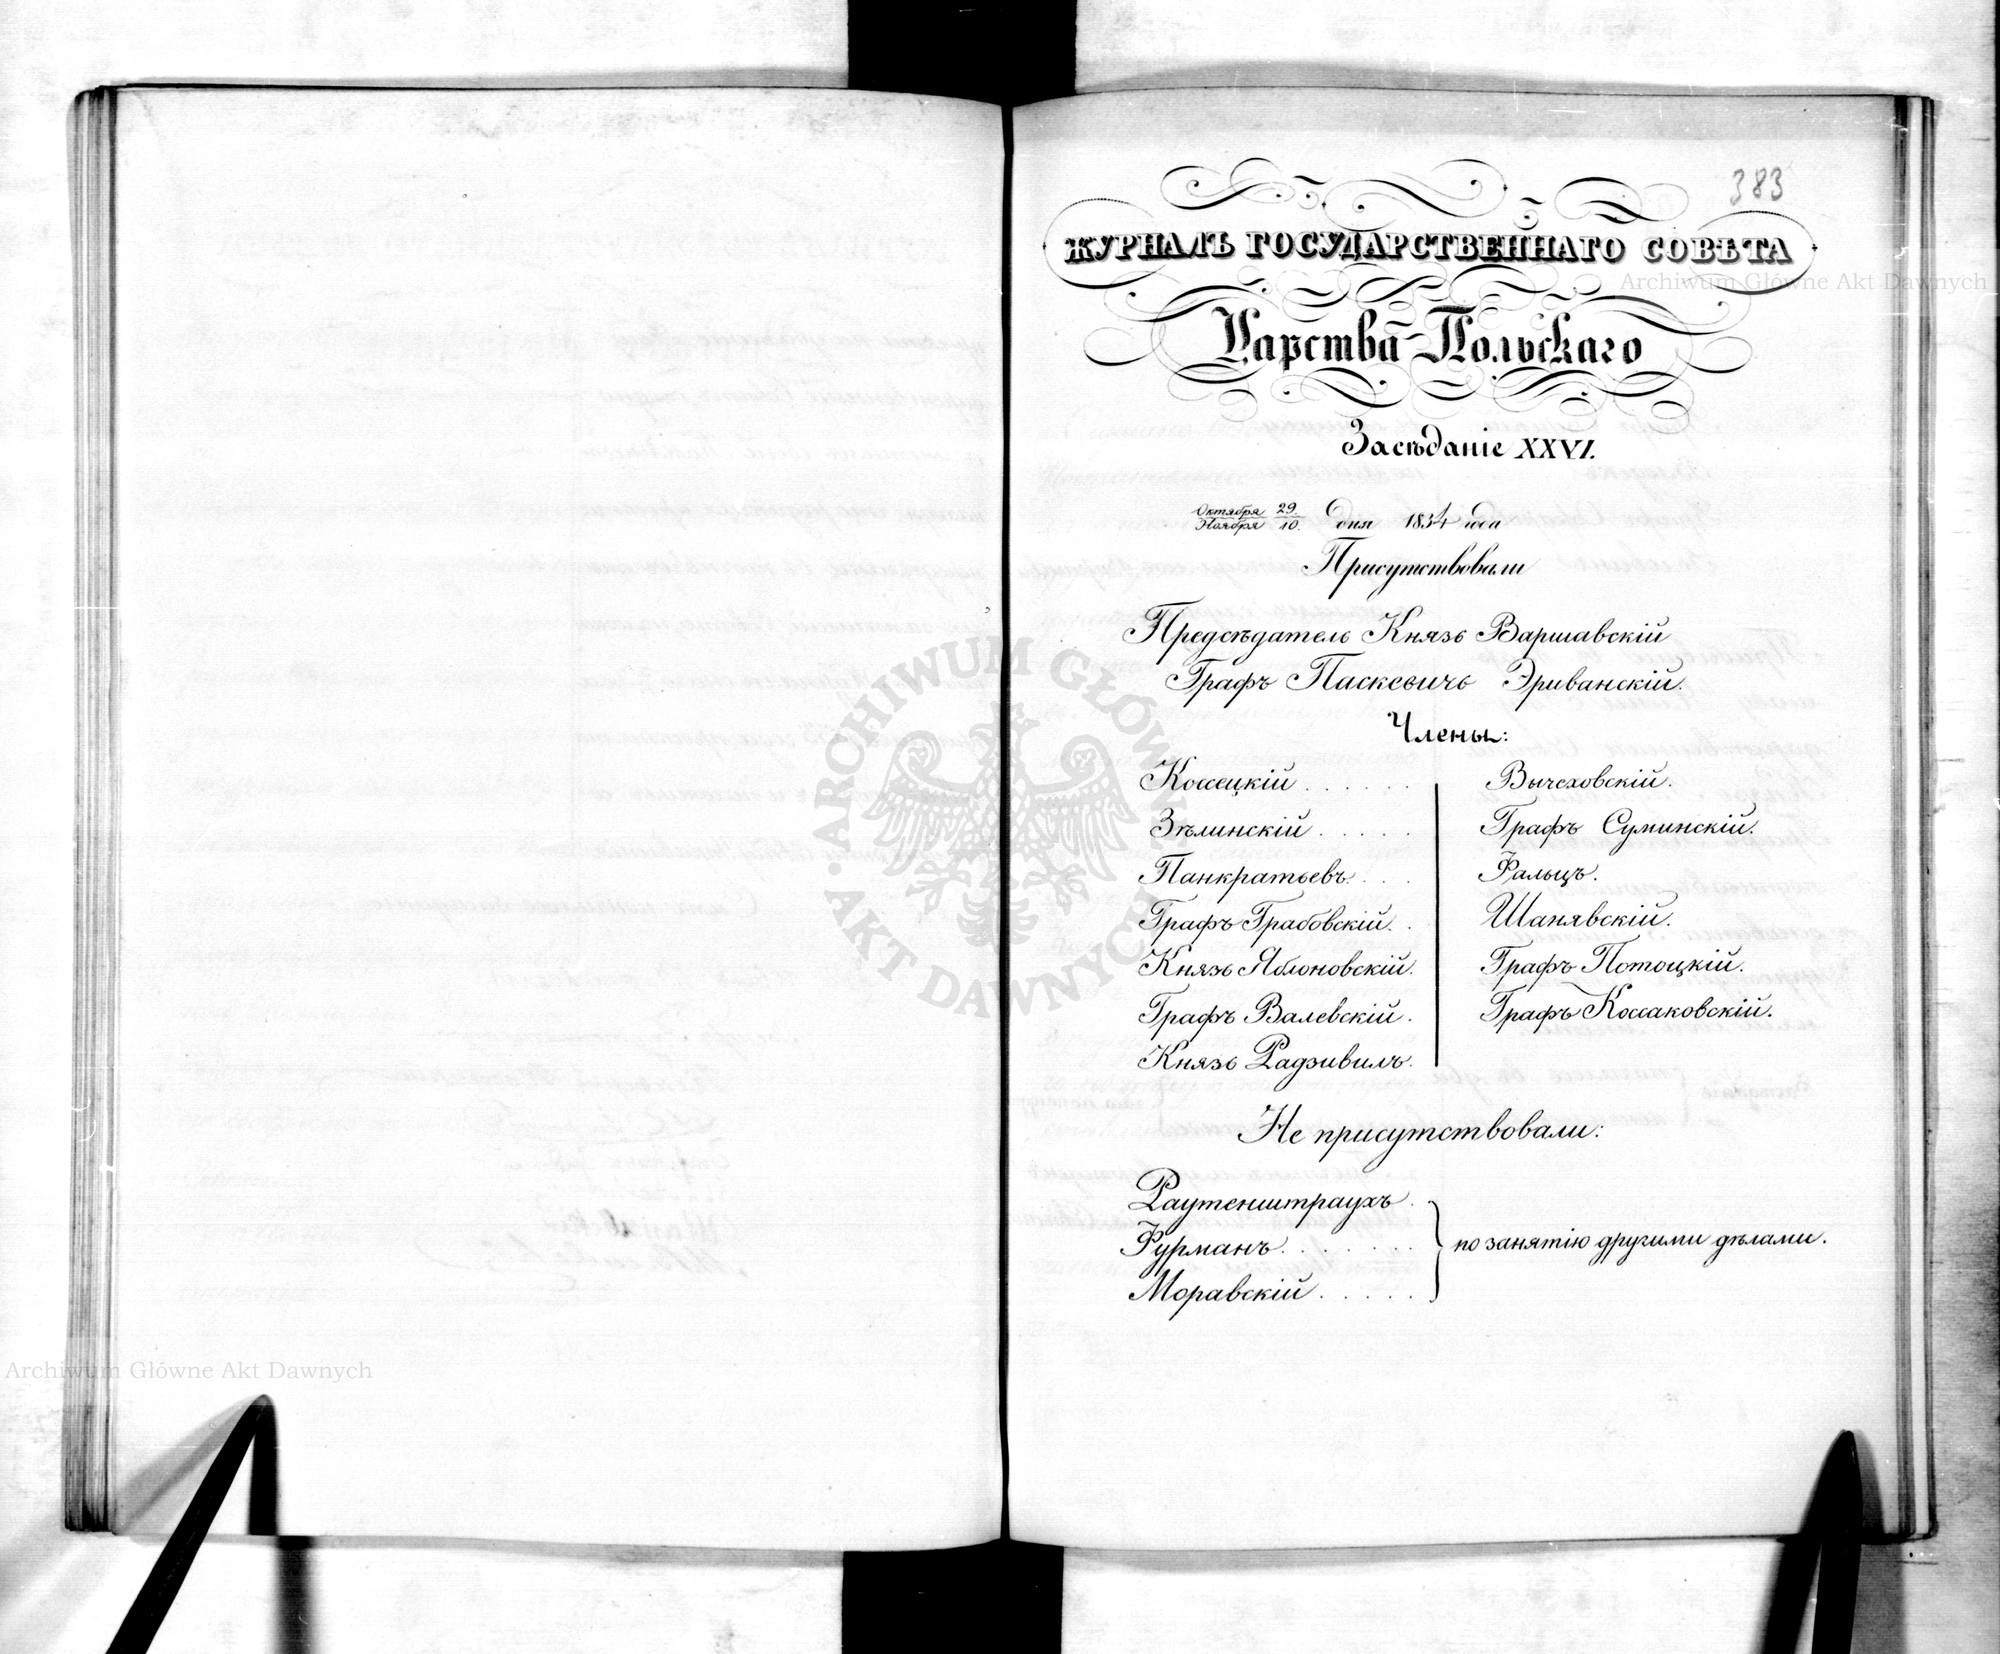 383
ЖУРНАЛЪ ГОСУДАРСТВЕННАГО СОВѢТА
Царства Польскаго
Засѣданіе XXVI.
Октября 29. / Ноября 10. дня 1834 года
Присутствовали
Предсѣдатель Князь Варшавскій
Графъ Паскевичь Эриванскій.
Члены:
Коссецкій . . . . . . Вычеховскій.
Зѣлинскій . . . . . Графъ Суминскій.
Панкратьевъ. . . . Фальцъ.
Графъ Грабовскій. . Шанявскій.
Князь Яблоновскій. Графъ Потоцкій.
Графъ Валевскій . Графъ Коссаковскій.
Князь Радзивилъ.
Не присутствовали:
Раутенштраухъ .
Фурманъ . . . . . . . по занятію другими дѣлами.
Моравскій . . . . .
Archiwum Główne Akt Dawnych
ARCHIWUM GŁÓWNE · AKT DAWNYCH ·
Archiwum Główne Akt Dawnych